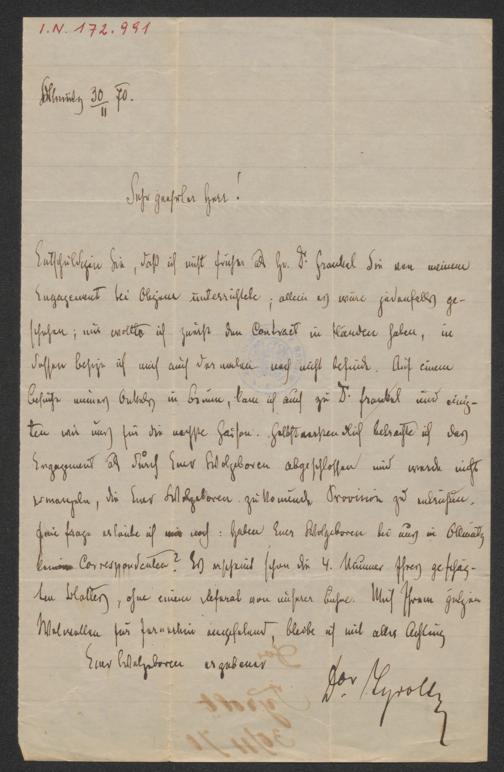 I.N. 172.991
Ollmütz 30/11 70.
Sehr geehrter Herr!
Entschuldigen Sie, daß ich nicht früher als Hr. Dr. Frankel Sie von meinem
Engagement bei Obigem unterrichtete; allein es wäre jedenfalls ge-
schehen; nur wollte ich zuerst den Contract in Händen haben, in
dessen Besitze ich mich auch dermalen noch nicht befinde. Auf einem
Besuche meines Onkels in Brünn, kam ich auch zu Dr. Frankel und einig-
ten wir uns für die nächste Saison. Selbstverständlich betrachte ich das
Engagement als durch Euer Wolgeboren abgeschlossen und werde nicht
ermangeln, die Euer Wolgeboren zukommende Provision zu entrichten.
Eine Frage erlaube ich mir noch: haben Euer Wolgeboren bei uns in Ollmütz
keinen Correspondenten? Es erscheint schon die 4. Nummer Ihres geschätz-
ten Blattes, ohne einem Referat von unserer Bühne. Mich Ihrem gütigen
Wolwollen für fernerhin empfehlend, bleibe ich mit aller Achtung
Euer Wolgeboren ergebener
Dor Tyrolt